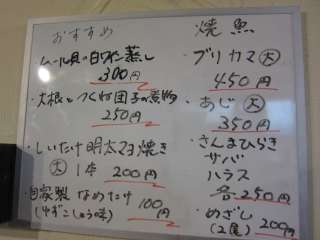 おすすめ
・ムール貝の白ワイン蒸し
300円
・大根とつくね団子の煮物
250円
・しいたけ明太マヨ焼き
大 1本 200円
・自家製 なめたけ
(ゆずこしょう味) 100円
焼魚
・ブリカマ 大
450円
・あじ 大
350円
・さんまひらき
サバ
ハラス
各250円
・めざし
(2尾) 200円